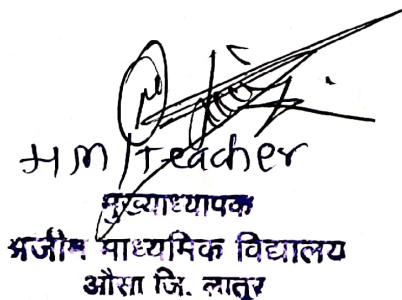 HM/Teacher
मुख्याध्यापक
अजीम माध्यमिक विद्यालय
औसा जि. लातूर